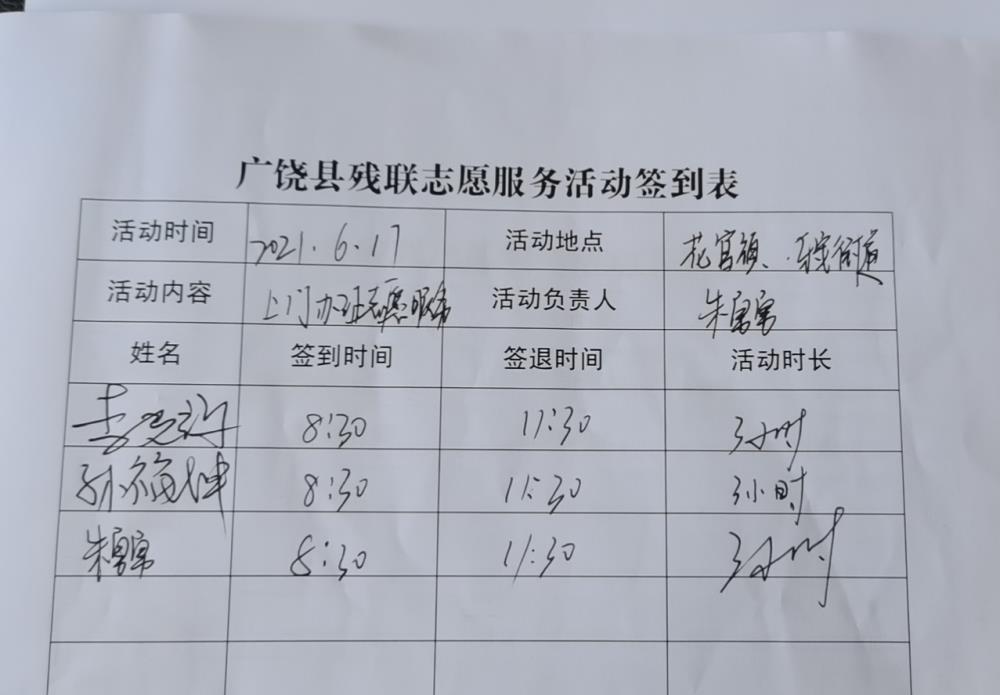 广饶县残联志愿服务活动签到表
活动时间 2021.6.17 活动地点 花官镇、乐安街道
活动内容 上门办证志愿服务 活动负责人 朱
姓名 签到时间 签退时间 活动时长
李 8:30 11:30 3小时
孙福坤 8:30 11:30 3小时
朱 8:30 11:30 3小时